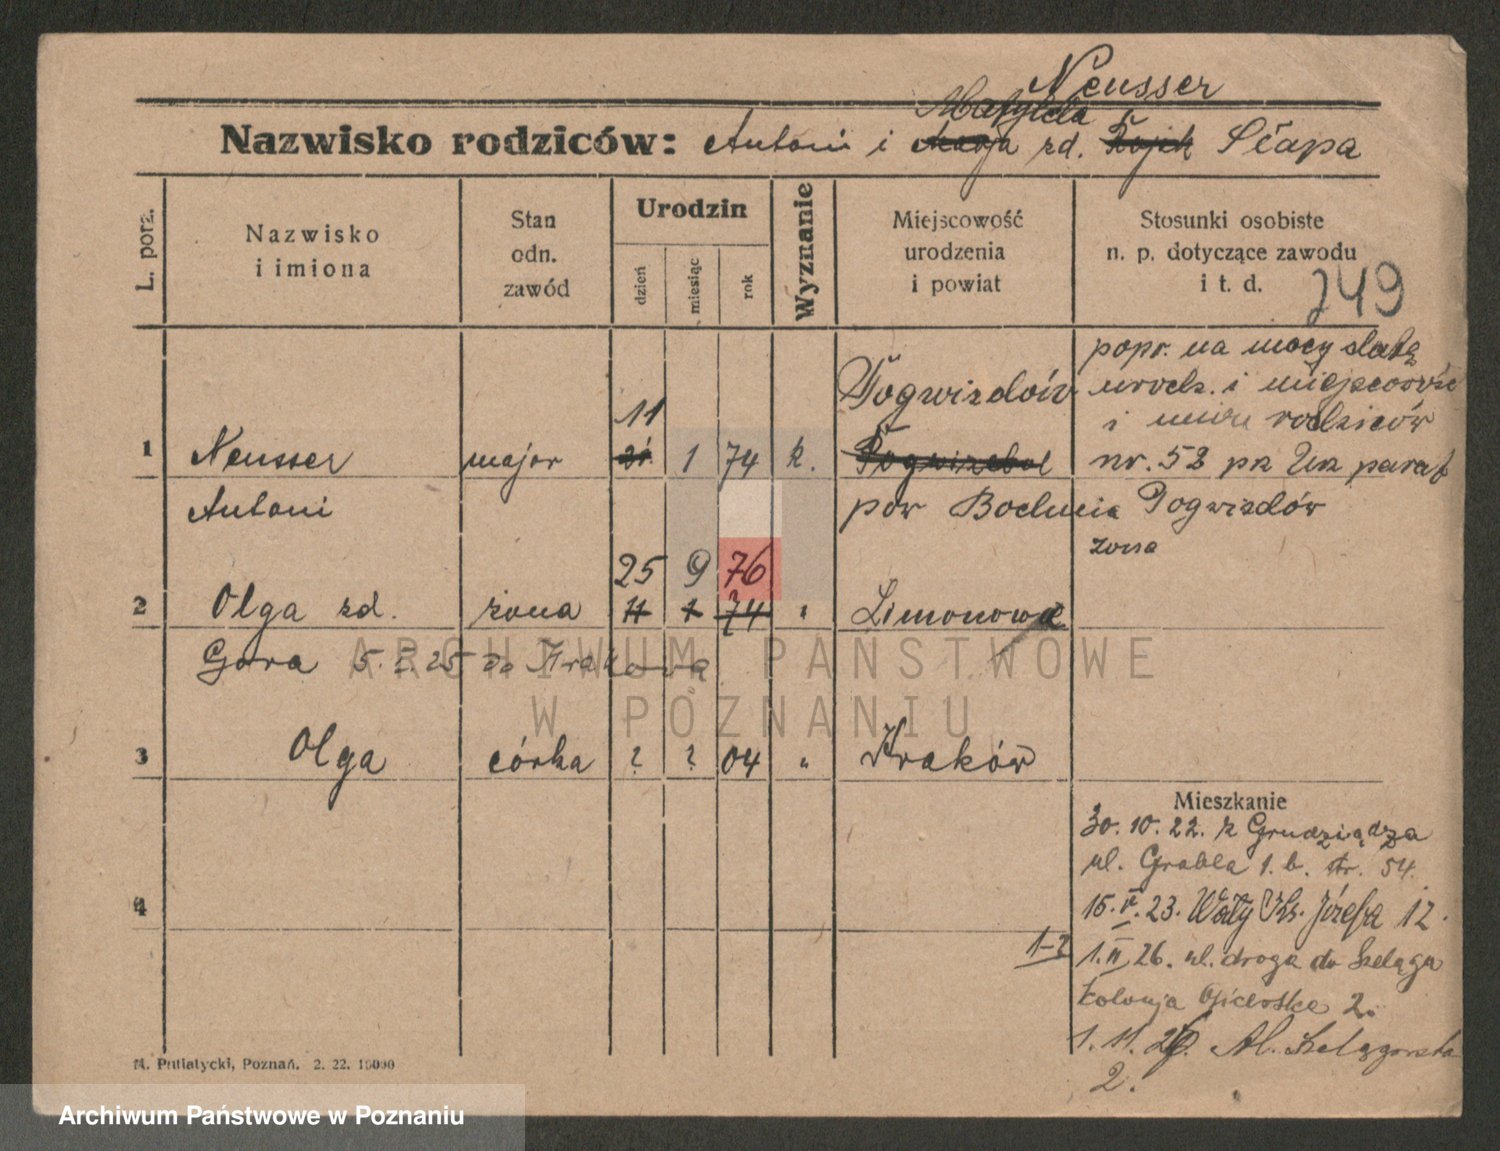 Neusser
Matylda
Nazwisko rodziców: Antoni i Marja zd. Stapa
L. porz.
Nazwisko
i imiona
Stan
odn.
zawód
Urodzin
dzień
miesiąc
rok
Wyznanie
Miejscowość
urodzenia
i powiat
Stosunki osobiste
n. p. dotyczące zawodu
i t. d.
749
popr. na mocy datę
Pogwizdów urodz. i miejscowość
11
i imię rodziców
1 Neusser major 21. 1 74 k. nr. 52 pz Urz paraf
Antoni pow Bochnia Pogwizdów
żona
25 9 76
2 Olga zd. żona 11 1 74 " Limonowa
Gora 5. 25 do Krakowa
3 Olga córka ? ? 04 " Kraków
Mieszkanie
30. 10. 22. z Grudziądza
ul. Grobla 1. b. tr. 54.
4 15. V. 23. Wały Ks. Józefa 12.
1-2 1. II 26. ul. droga do Szeląga
kolonja 2.
1. 11. 26. Al. Szelągowska
2.
M. Putiatycki, Poznań. 2. 22. 10000
ARCHIWUM PAŃSTWOWE
W POZNANIU
Archiwum Państwowe w Poznaniu